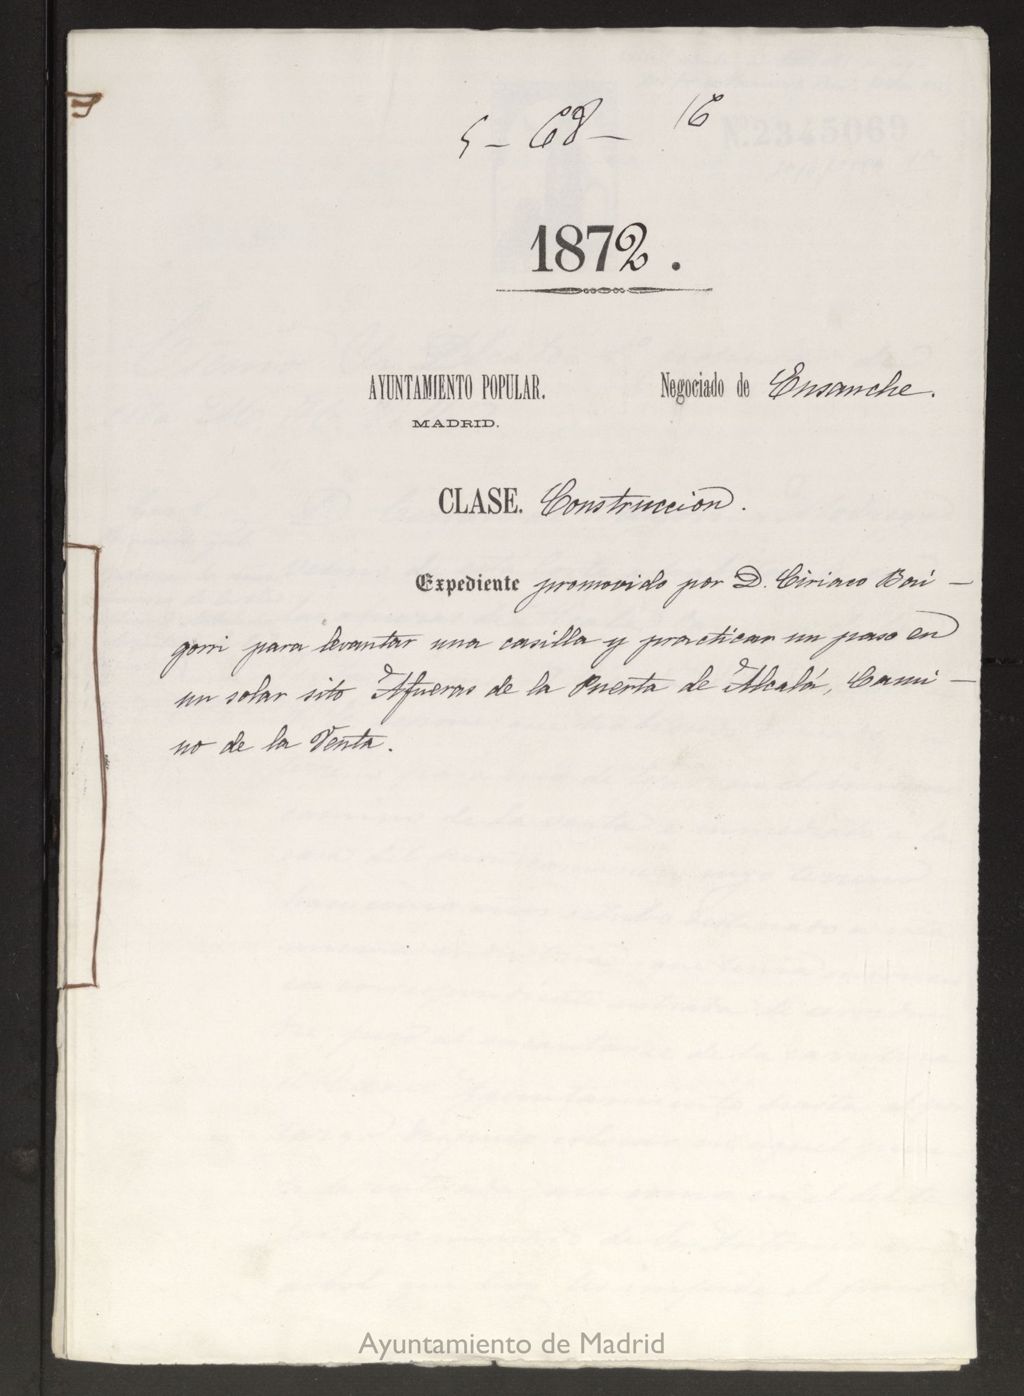 5 - 68 - 16
1872.
AYUNTAMIENTO POPULAR.
MADRID.
Negociado de Ensanche.
CLASE. Construccion.
Expediente promovido por D. Ciriaco Bari-
gorri para levantar una casilla y practicar un paso en
un solar sito Afueras de la Puerta de Alcalá, Cami-
no de la Venta.
Nº 2345069
Ayuntamiento de Madrid